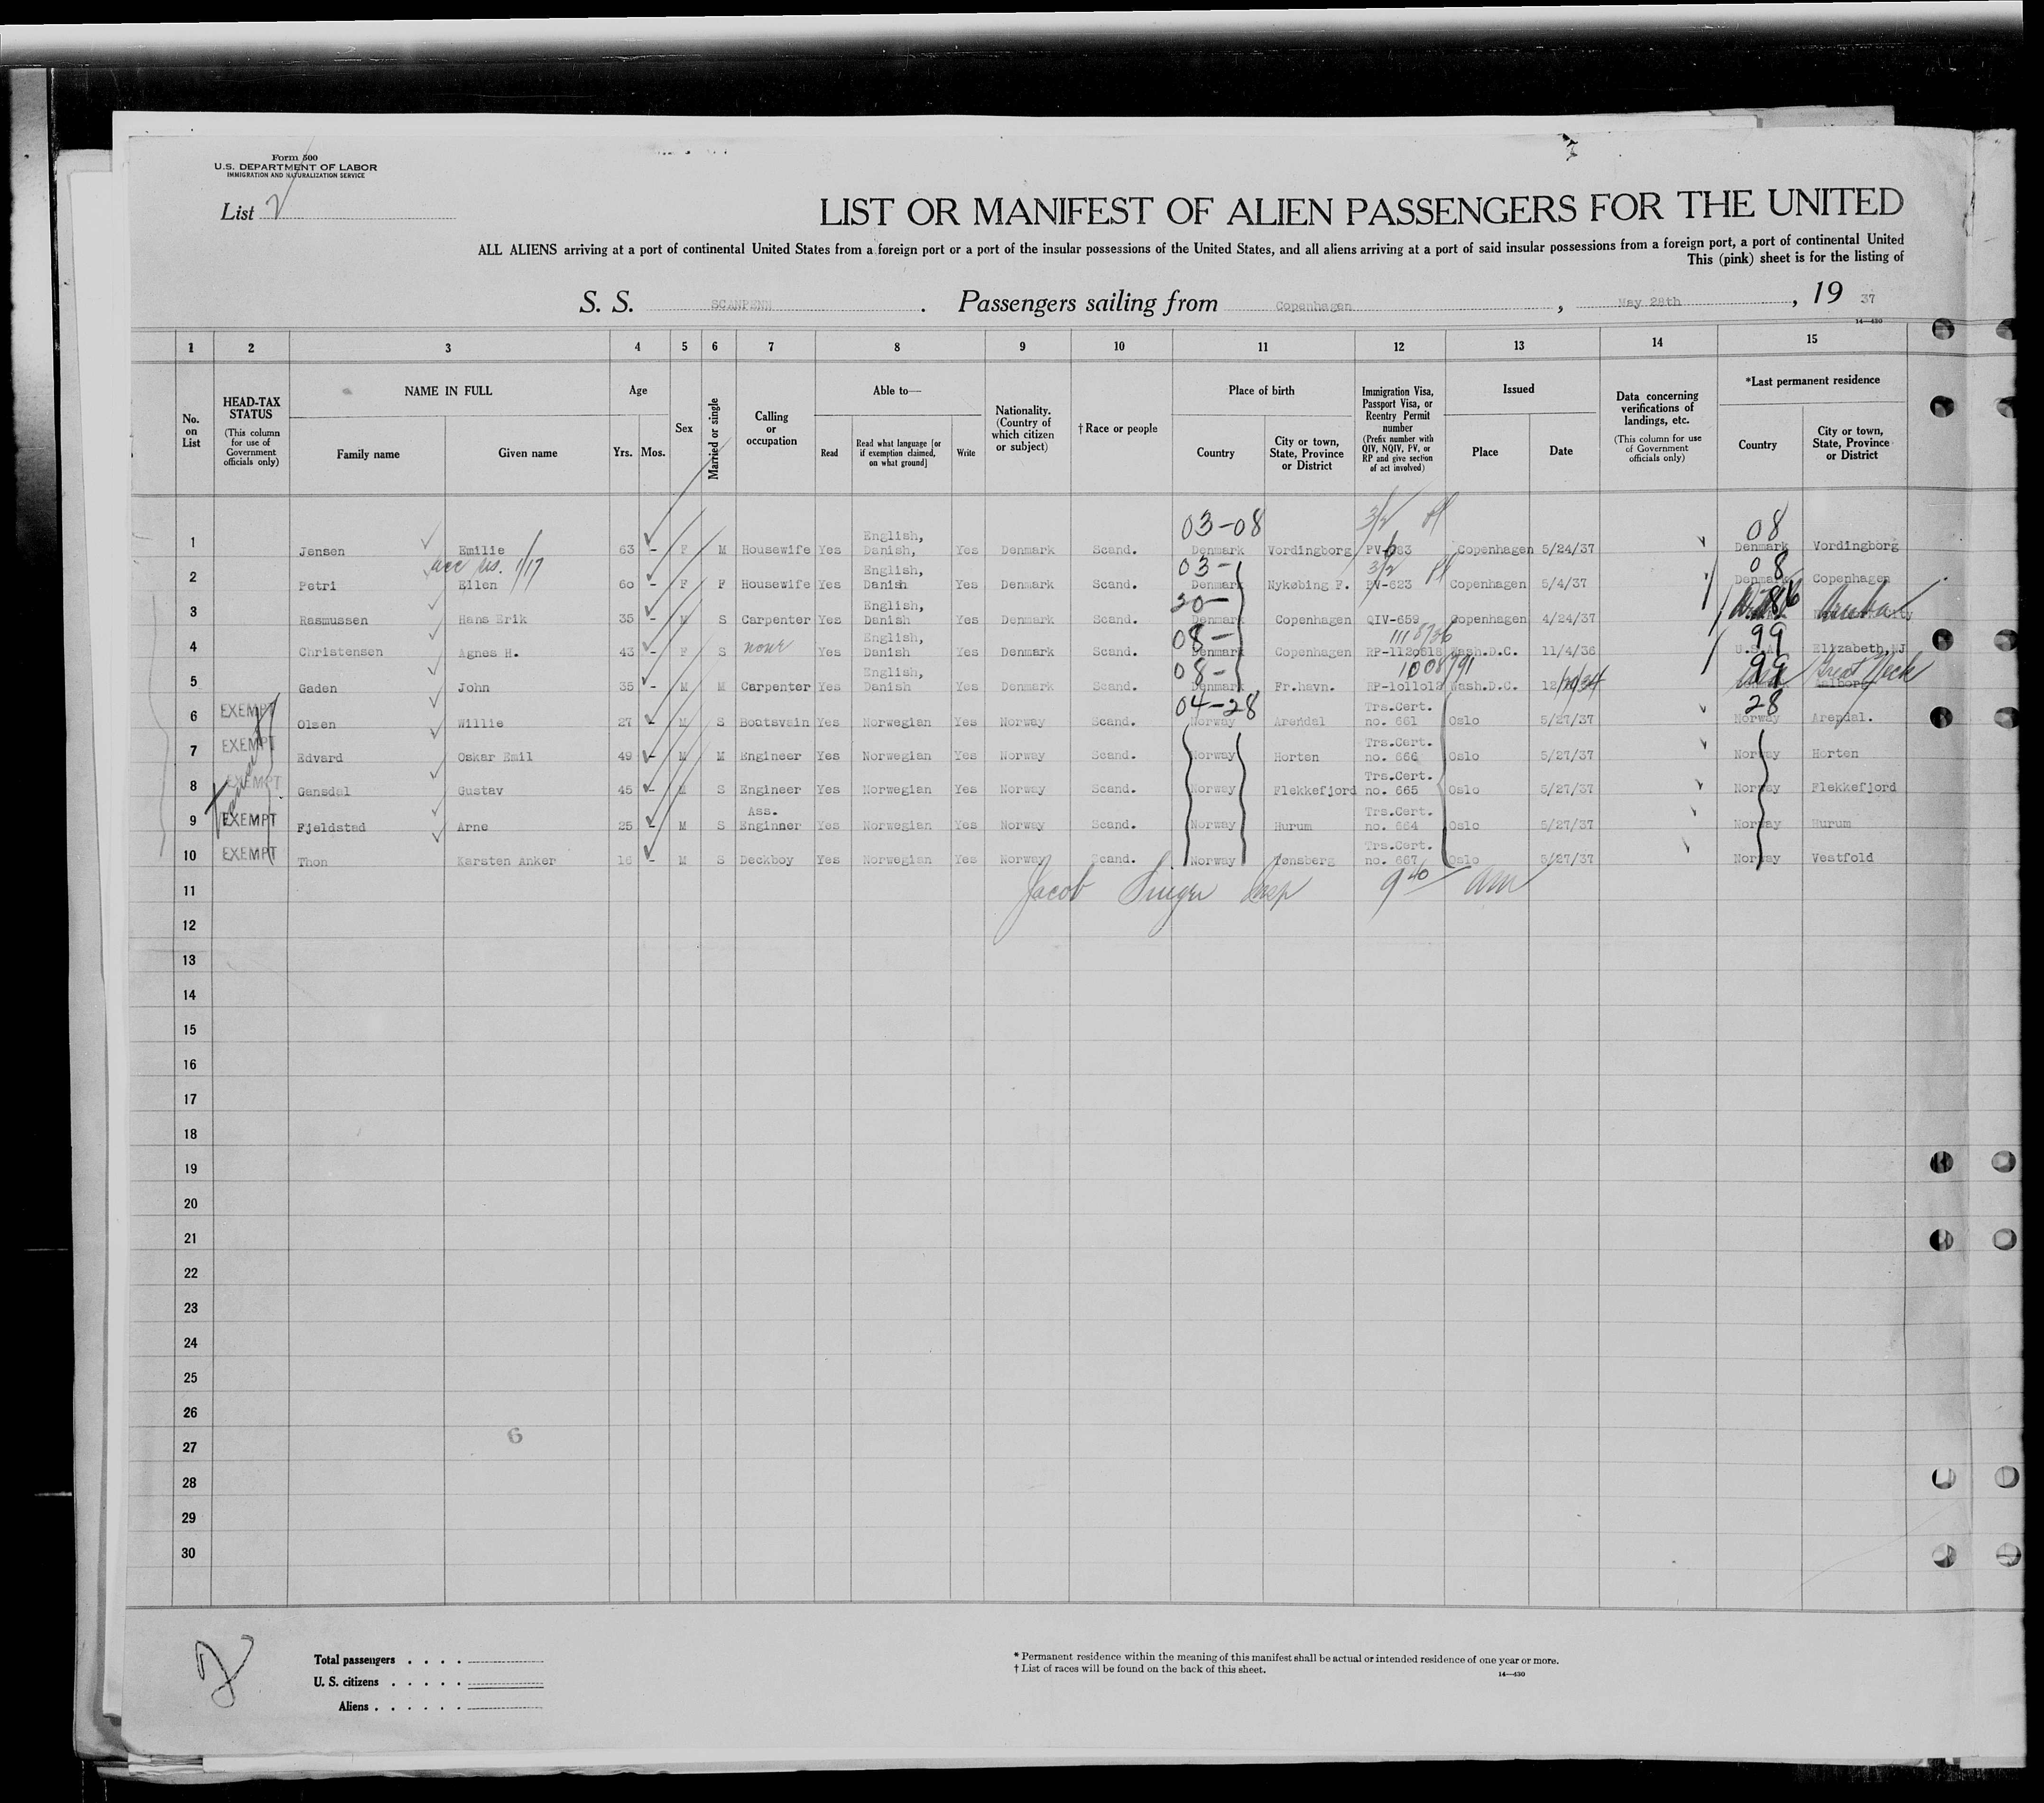 Form 500
U.S. DEPARTMENT OF LABOR
IMMIGRATION AND NATURALIZATION SERVICE
List 2
LIST OR MANIFEST OF ALIEN PASSENGERS FOR THE UNITED
ALL ALIENS arriving at a port of continental United States from a foreign port or a port of the insular possessions of the United States, and all aliens arriving at a port of said insular possessions from a foreign port, a port of continental United
This (pink) sheet is for the listing of
S. S. SCANPENN. Passengers sailing from Copenhagen, May 28th, 19 37
14—430
1 2 3 4 5 6 7 8 9 10 11 12 13 14 15
No. on List
HEAD-TAX STATUS (This column for use of Government officials only)
NAME IN FULL
Family name Given name
Age
Yrs. Mos.
Sex
Married or single
Calling or occupation
Able to—
Read
Read what language [or if exemption claimed, on what ground]
Write
Nationality. (Country of which citizen or subject)
†Race or people
Place of birth
Country
City or town, State, Province or District
Immigration Visa, Passport Visa, or Reentry Permit number (Prefix number with QIV, NQIV, PV, or RP and give section of act involved)
Issued
Place Date
Data concerning verifications of landings, etc. (This column for use of Government officials only)
*Last permanent residence
Country
City or town, State, Province or District
03-08 3/2 08
1 Jensen Emilie 63 - F M Housewife Yes English, Danish, Yes Denmark Scand. Denmark Vordingborg Copenhagen 5/24/37 Denmark Vordingborg
1/17 03- 3/2 08
2 Petri Ellen 60 - F F Housewife Yes English, Danish Yes Denmark Scand. Denmark Nykøbing F. PV-623 Copenhagen 5/4/37 Denmark Copenhagen
20- 86 Aruba
3 Rasmussen Hans Erik 35 - M S Carpenter Yes English, Danish Yes Denmark Scand. Denmark Copenhagen QIV-659 Copenhagen 4/24/37
08- 1118736 99
4 Christensen Agnes H. 43 - F S none Yes English, Danish Yes Denmark Scand. Denmark Copenhagen RP-1120618 Wash.D.C. 11/4/36 U.S.A. Elizabeth,NJ
08- 1008791 99 Great Neck
5 Gaden John 35 - M M Carpenter Yes English, Danish Yes Denmark Scand. Denmark Fr.havn. RP-1011018 Wash.D.C. Aalborg
04-28 28
6 EXEMPT Olsen Willie 27 - M S Boatsvain Yes Norwegian Yes Norway Scand. Norway Arendal Trs.Cert. no. 661 Oslo 5/27/37 Norway Arendal.
7 EXEMPT Edvard Oskar Emil 49 - M M Engineer Yes Norwegian Yes Norway Scand. Norway Horten Trs.Cert. no. 666 Oslo 5/27/37 Norway Horten
8 EXEMPT Gansdal Gustav 45 - M S Engineer Yes Norwegian Yes Norway Scand. Norway Flekkefjord Trs.Cert. no. 665 Oslo 5/27/37 Norway Flekkefjord
9 EXEMPT Fjeldstad Arne 25 - M S Ass. Enginner Yes Norwegian Yes Norway Scand. Norway Hurum Trs.Cert. no. 664 Oslo 5/27/37 Norway Hurum
10 EXEMPT Thon Karsten Anker 16 - M S Deckboy Yes Norwegian Yes Norway Scand. Norway Tønsberg Trs.Cert. no. 667 Oslo 5/27/37 Norway Vestfold
11 Jacob Singer Insp 9 40 am
12
13
14
15
16
17
18
19
20
21
22
23
24
25
26
6
27
28
29
30
2
Total passengers
U. S. citizens
Aliens
* Permanent residence within the meaning of this manifest shall be actual or intended residence of one year or more.
† List of races will be found on the back of this sheet.
14—430